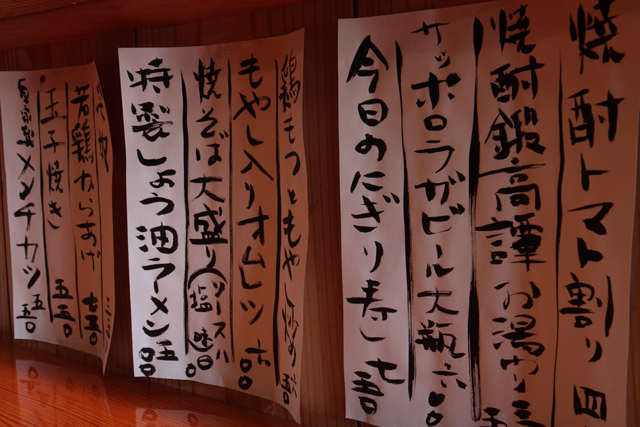 焼酎トマト割り 四五
焼酎鍛高譚 お湯わり 三五
サッポロラガビール大瓶 六〇〇
今日のにぎり寿し 七五〇
鶏もつともやし炒め 五五〇
もやし入りオムレツ 六〇〇
焼そば大盛り(ソース 塩味)八〇〇
特製しょう油ラーメン 五〇〇
若鶏からあげ 七五〇
玉子焼き 五五〇
自家製メンチカツ 五五〇